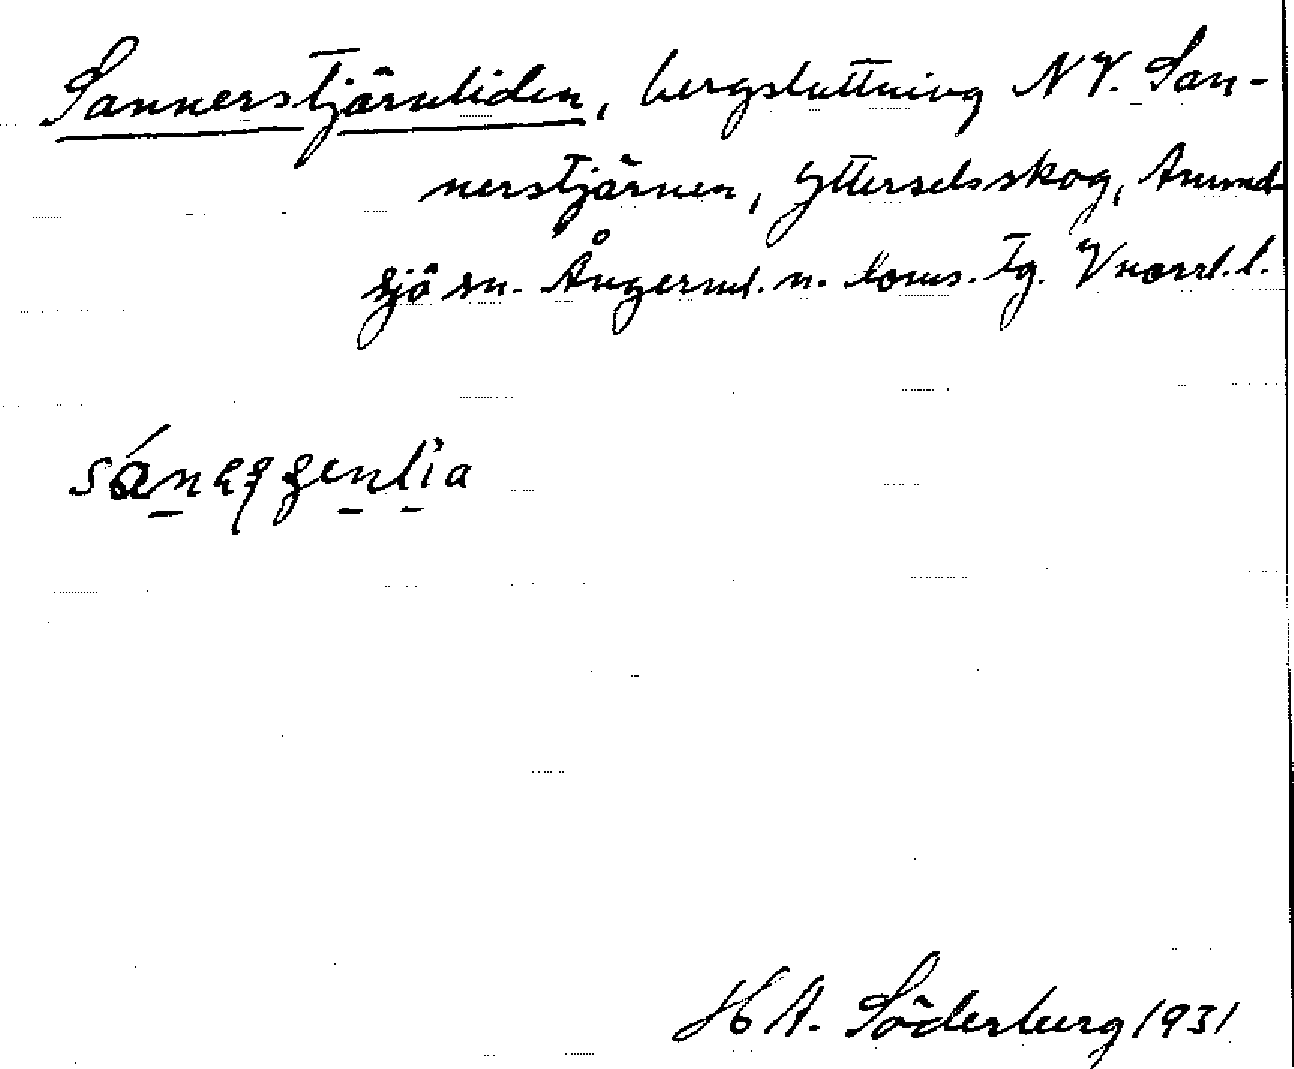 Sannerstjärnliden, bergsluttning NV. San-
nerstjärnen, Ytterselsskog, Anund-
sjö sn. Ångerml. n. doms. Tg. Vnorrl. l.
H A. Söderberg 1931